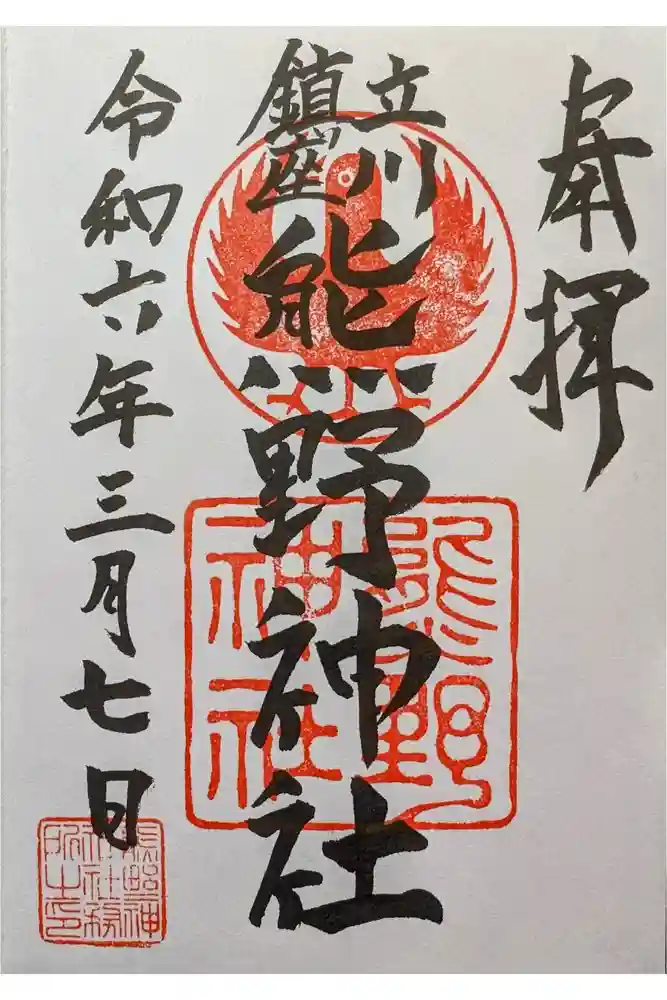 奉拝
立川
鎮座
熊野神社
令和六年三月七日
熊野
神社
熊野神
社務
所之印